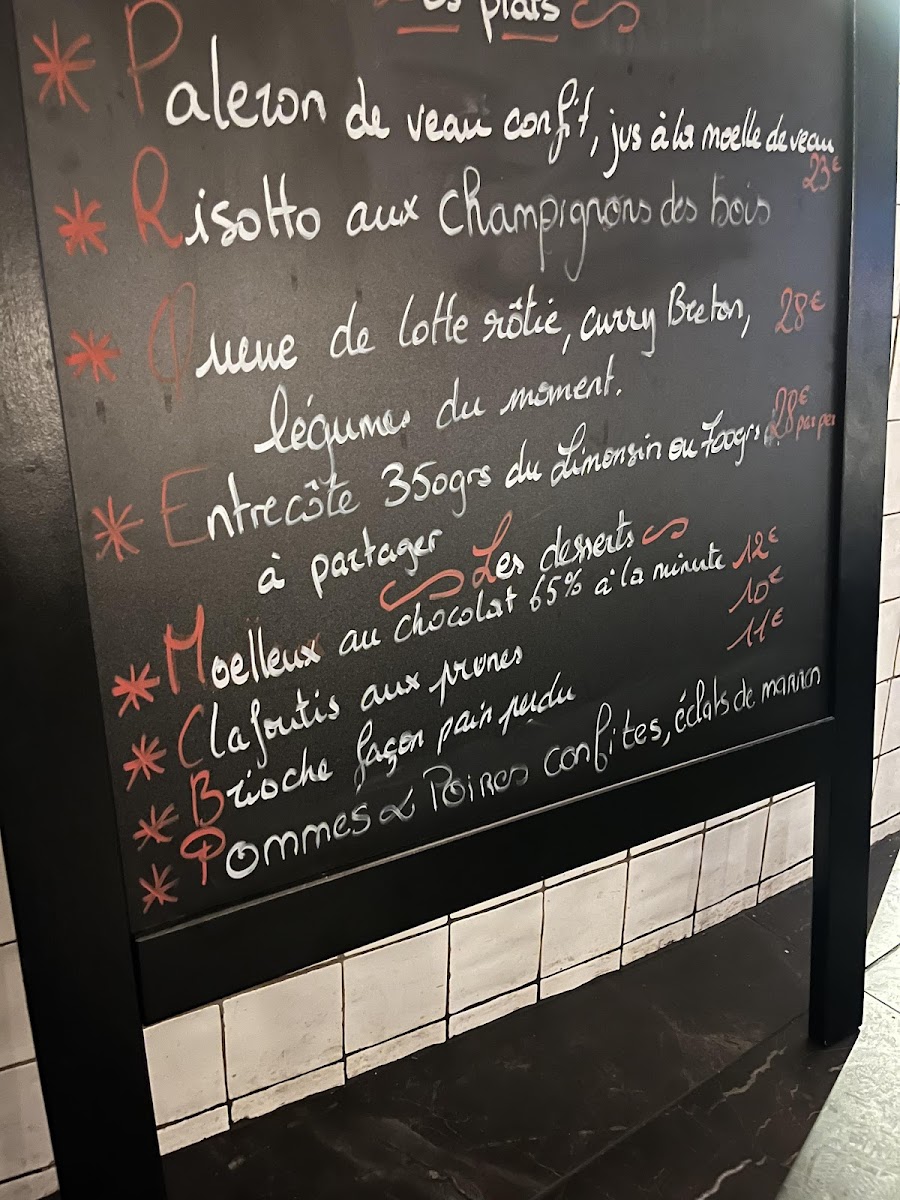 Les plats
* Paleron de veau confit, jus à la moelle de veau
* Risotto aux champignons des bois 23€
* Queue de lotte rôtie, curry Breton, 28€
légumes du moment.
* Entrecôte 350grs du Limousin ou 700grs 28€ par per
à partager
Les desserts
* Moelleux au chocolat 65% à la minute 12€
* Clafoutis aux prunes 10€
* Brioche façon pain perdu 11€
* Pommes & Poires confites, éclats de marron